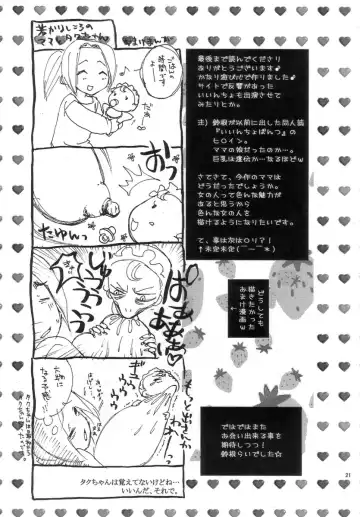 若かりしころの
ママとタクちゃん
おまけまんが
ごはんの
時間でーす
おっ
たゆんっ
大物に
なる予感…
タクちゃんは覚えてないけどね…
いいんだ、それで。
最後まで読んでくださり
ありがとうございます♪
かなり遊びで作りました♪
サイトで反響があった
いいんちょも出演させて
みたりとか。
注）鈴根が以前に出した同人誌
『いいんちょぱんつ』の
ヒロイン。
ママの娘だったのか…
巨乳は遺伝か…なるほどw
さてさて、今作のママは
どうだったでしょうか。
女の人って色んな魅力が
あると思うから
色んな女の人を
描けるようになりたいです。
て、事は次は○リ？！
↑未定未定（￣ー￣＊）
どうしても
描きたかった
おまけ漫画w
↓
ではではまた
お会い出来る事を
期待しつつ！
鈴根らいでした☆
21